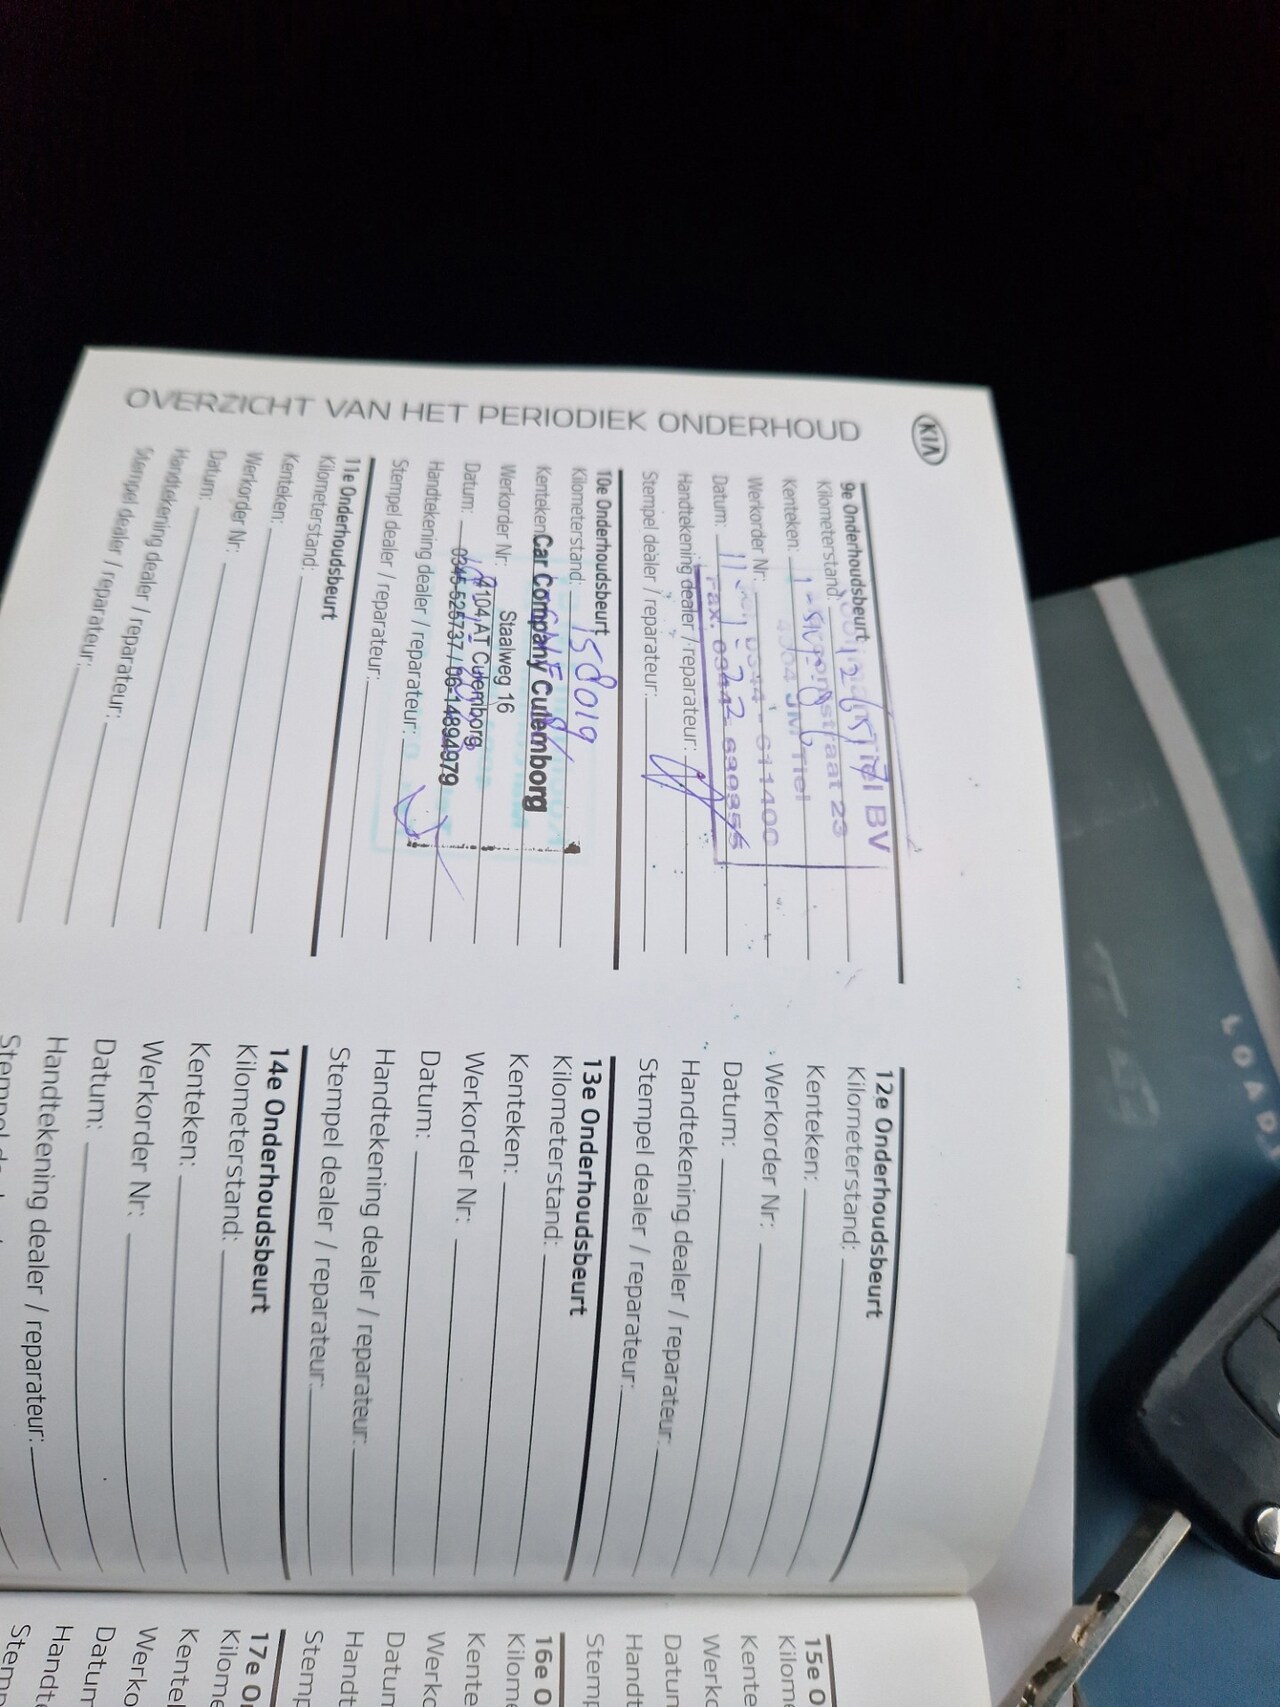 KIA
OVERZICHT VAN HET PERIODIEK ONDERHOUD
9e Onderhoudsbeurt
Kilometerstand:
BV
Kenteken:
23
Tiel
Werkorder Nr:
0344 - 611400
Datum:
Fax. 0344-630355
Handtekening dealer / reparateur:
Stempel dealer / reparateur:
10e Onderhoudsbeurt
Kilometerstand: 158019
Kenteken
Car Company Culemborg
Werkorder Nr:
Staalweg 16
Datum:
4104 AT Culemborg
0345-525737 / 06-14894979
Handtekening dealer / reparateur:
Stempel dealer / reparateur:
11e Onderhoudsbeurt
Kilometerstand:
Kenteken:
Werkorder Nr:
Datum:
Handtekening dealer / reparateur:
Stempel dealer / reparateur:
12e Onderhoudsbeurt
Kilometerstand:
Kenteken:
Werkorder Nr:
Datum:
Handtekening dealer / reparateur:
Stempel dealer / reparateur:
13e Onderhoudsbeurt
Kilometerstand:
Kenteken:
Werkorder Nr:
Datum:
Handtekening dealer / reparateur:
Stempel dealer / reparateur:
14e Onderhoudsbeurt
Kilometerstand:
Kenteken:
Werkorder Nr:
Datum:
Handtekening dealer / reparateur:
15e O
Kilome
Kente
Werko
Datun
Handt
Stemp
16e O
Kilome
Kente
Werko
Datun
Handt
Stemp
17e O
Kilome
Kente
Werko
Datum
Handte
Stem
LOAD